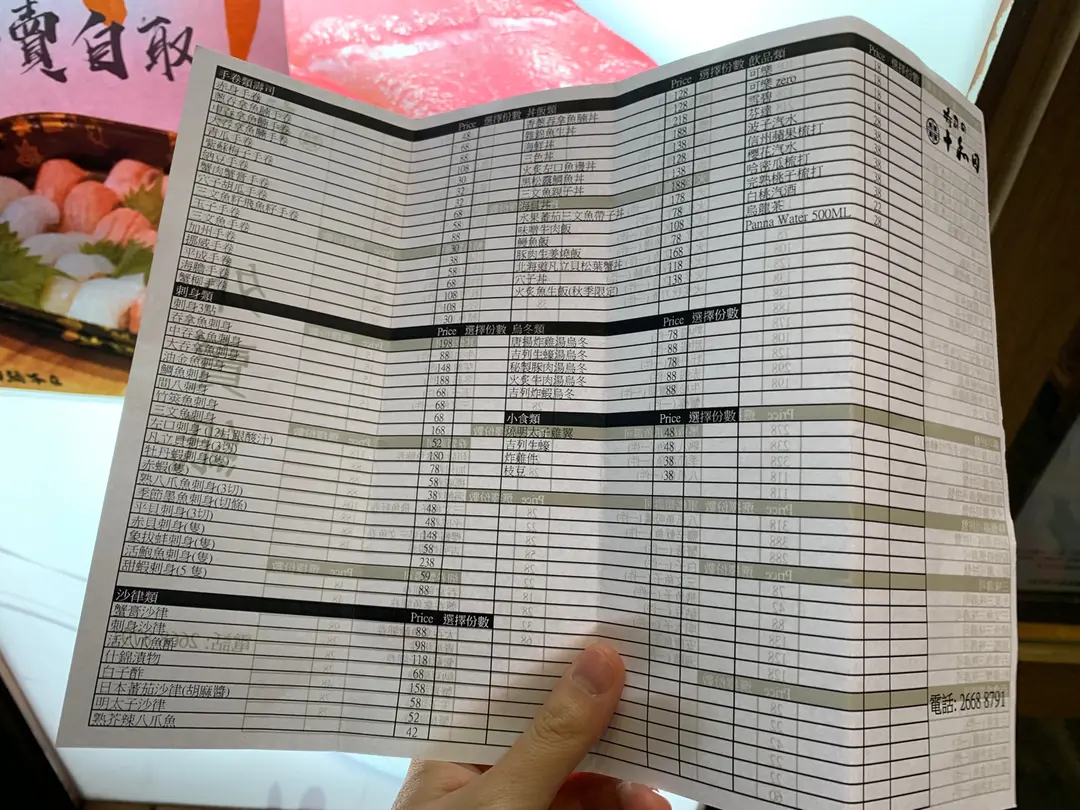 賣自取
手卷類壽司 Price 選擇份數
赤身手卷
蔥吞拿魚腩手卷
中吞拿魚腩手卷
大吞拿魚腩手卷
青瓜手卷
紫蘇梅子手卷
納豆手卷
蟹肉蟹膏手卷
穴子胡瓜手卷
三文魚籽飛魚籽手卷
玉子手卷
三文魚手卷
加州手卷
挪威手卷
平成手卷
海膽手卷
蟹柳手卷
刺身類 Price 選擇份數
刺身3點 198
吞拿魚刺身 88
中吞拿魚刺身 148
大吞拿魚刺身 188
油金魚刺身 68
鯛魚刺身 68
間八刺身 68
竹筴魚刺身 168
三文魚刺身 52
左口刺身 (12封跟酸汁) 180
凡立貝刺身(3切) 78
牡丹蝦刺身(隻) 58
赤蝦(隻) 38
熟八爪魚刺身(3切) 48
季節墨魚刺身(切條) 48
平貝刺身(3切) 148
赤貝刺身(隻) 58
象拔蚌刺身(隻) 238
活鮑魚刺身(隻) 59
甜蝦刺身(5 隻) 88
沙律類 Price 選擇份數
蟹膏沙律 88
刺身沙律 98
活八爪魚酢 118
什錦漬物 68
白子酢 158
日本蕃茄沙律(胡麻醬) 58
明太子沙律 52
熟芥辣八爪魚 42
丼飯類 Price 選擇份數
香蔥吞拿魚腩丼 128
雜錦魚生丼 128
海鮮丼 218
三色丼 188
火炙左口魚邊丼 138
黑松露鯛魚丼 128
三文魚親子丼 138
海膽丼 188
水果蕃茄三文魚帶子丼 178
味噌牛肉飯 78
鰻魚飯 108
豚肉生姜燒飯 78
北海道凡立貝松葉蟹丼 168
穴子丼 118
火炙魚生飯(秋季限定) 138
烏冬類 Price 選擇份數
唐揚炸雞湯烏冬 78
吉列生蠔湯烏冬 88
秘製豚肉湯烏冬 78
火炙牛肉湯烏冬 88
吉列炸蝦烏冬 88
小食類 Price 選擇份數
燒明太子雞翼 48
吉列生蠔 48
炸雞件 38
枝豆 38
飲品類 Price 選擇份數
可樂
可樂 zero
雪碧
芬達
波子汽水
信州蘋果梳打
櫻花汽水
哈密瓜梳打
完熟桃子梳打
白桃汽酒
烏龍茶
Panna Water 500ML
十和田
電話: 2668 8791